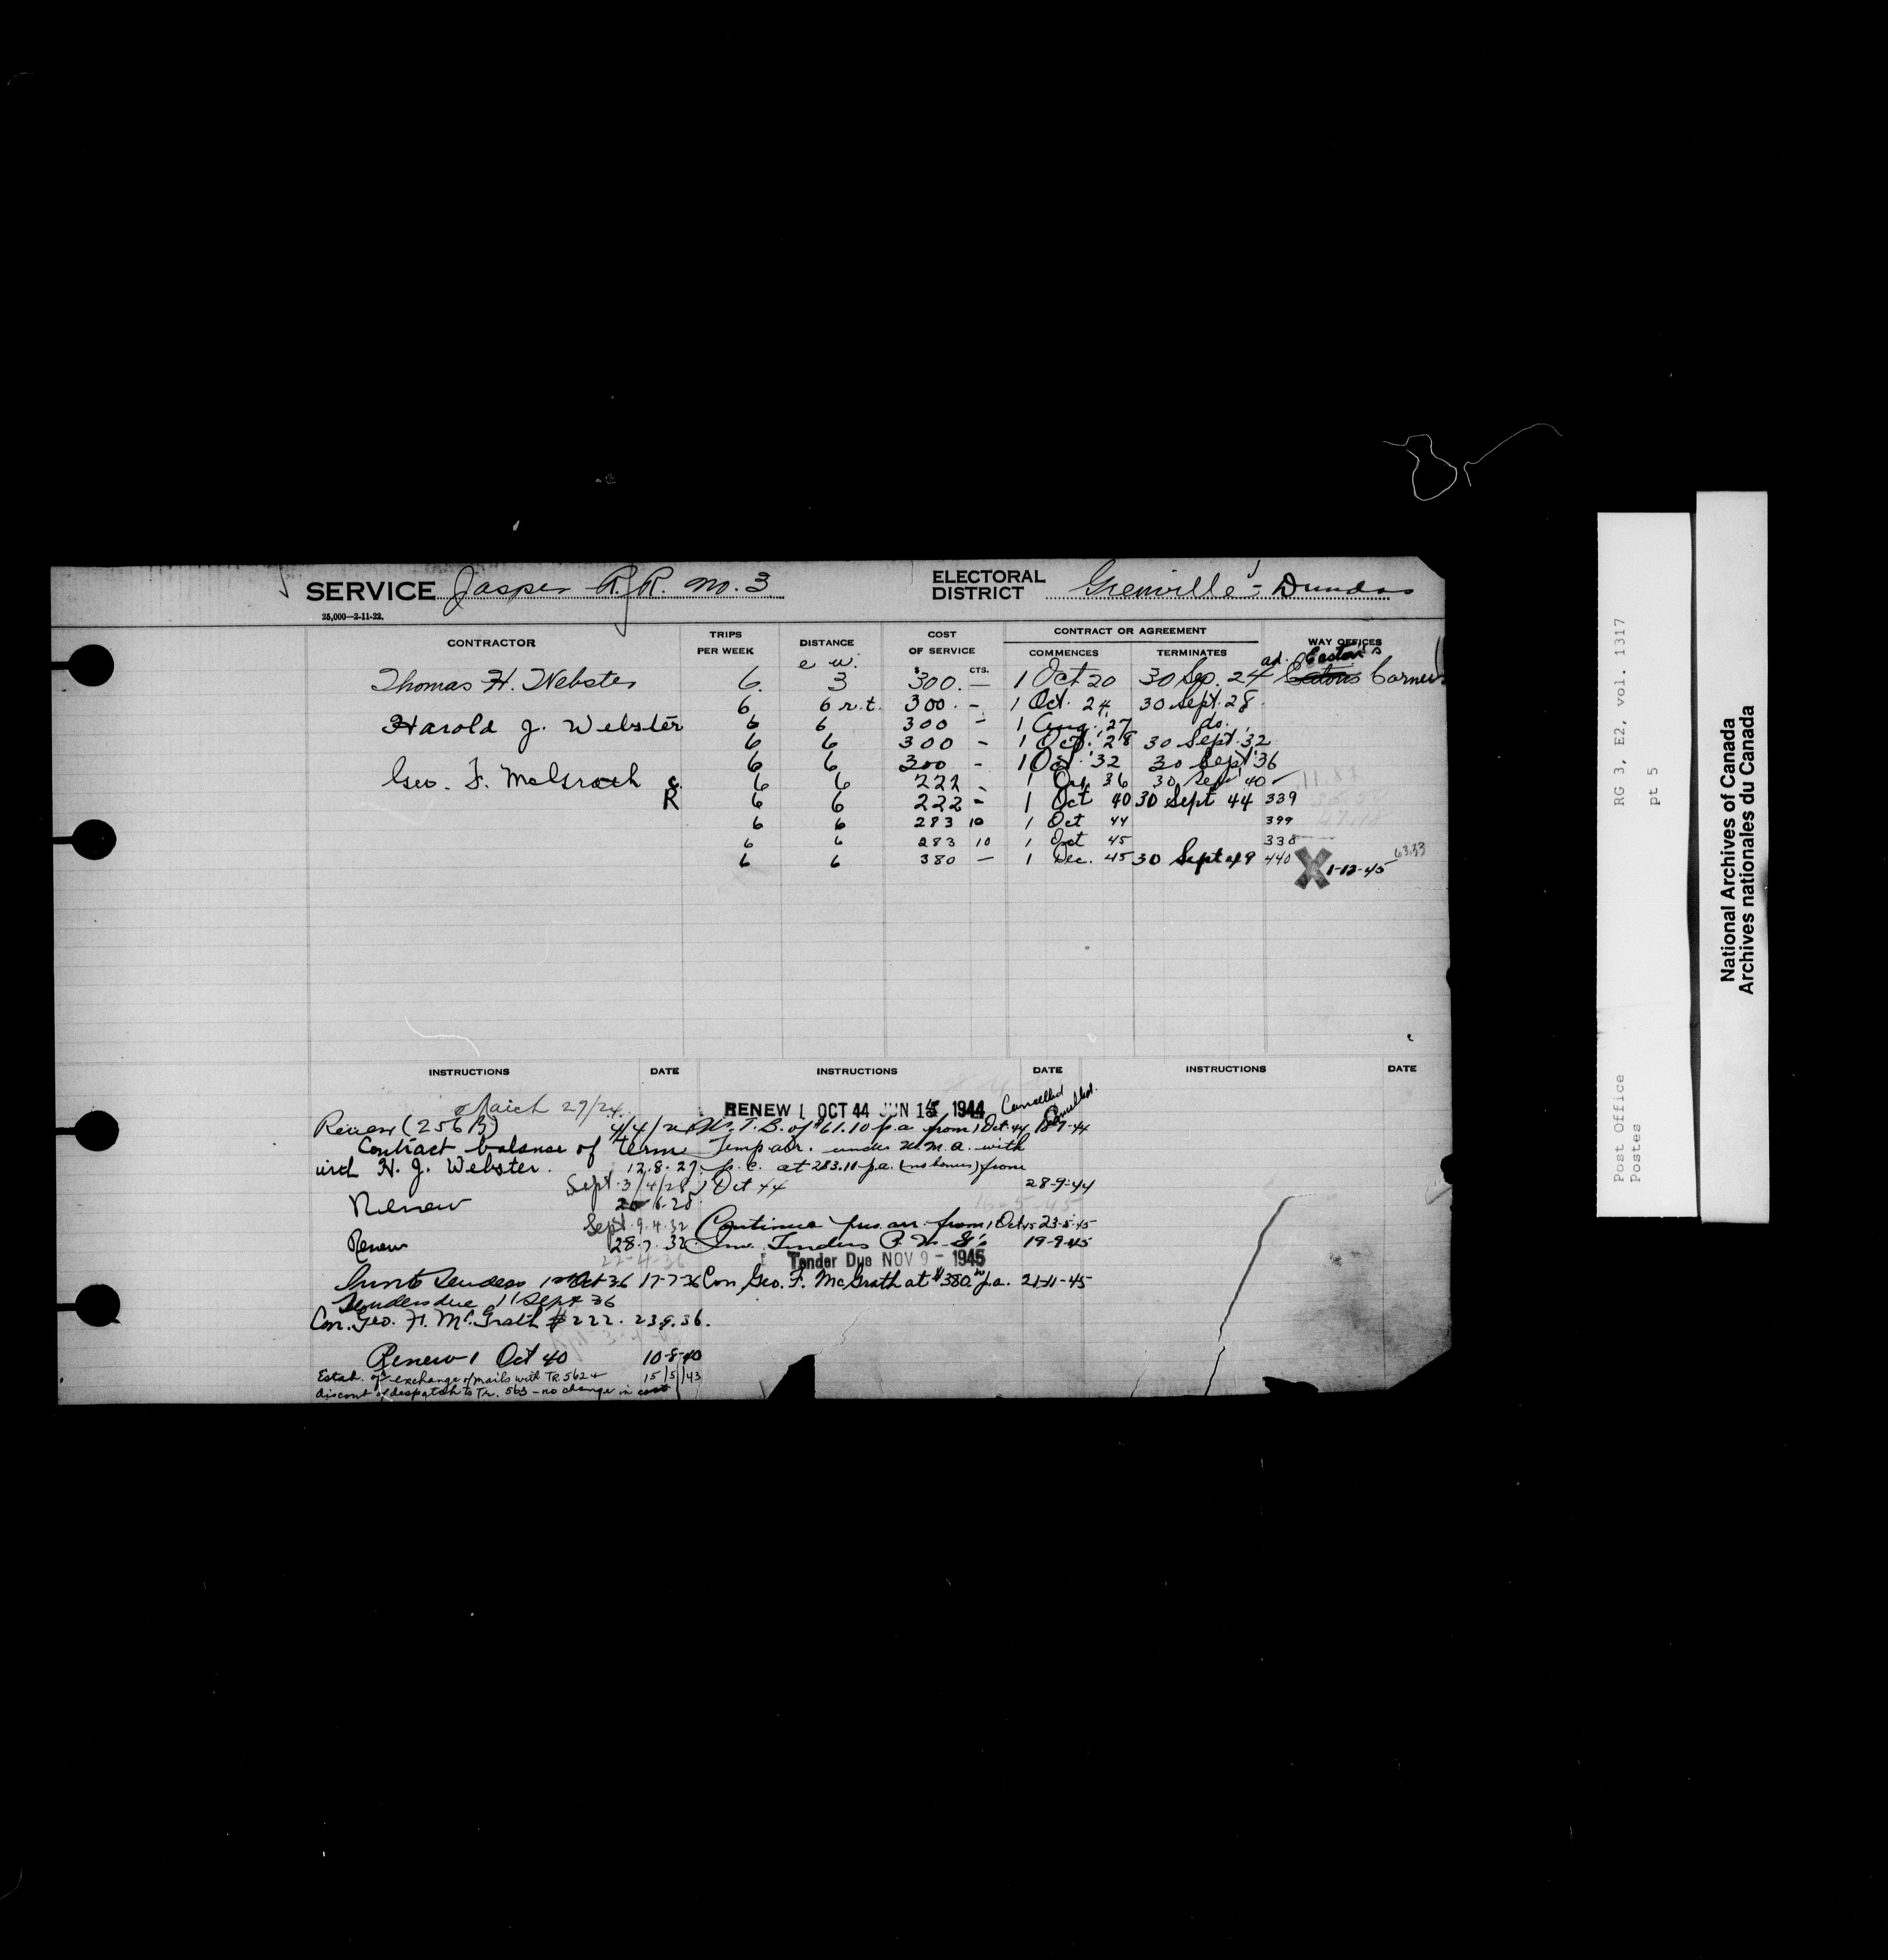 SERVICE Jasper R.R. No. 3 ELECTORAL DISTRICT Grenville - Dundas
25,000—2-11-22.
CONTRACTOR TRIPS PER WEEK DISTANCE COST OF SERVICE CONTRACT OR AGREEMENT COMMENCES TERMINATES WAY OFFICES
e w. $ CTS. ad. Easton's
Thomas H. Webster 6. 3 300. — 1 Oct 20 30 Sep. 24 Eatons Corners
6 6 r.t. 300. - 1 Oct. 24 30 Sept. 28
Harold J. Webster 6 6 300 - 1 Aug. 27 do.
6 6 300 - 1 Oct. '28 30 Sept. '32
6 6 300 - 1 Oct. '32 30 Sept '36
Geo. F. McGrath c. 6 6 222 - 1 Oct 36 30 Sept 40 11.87
R 6 6 222 - 1 Oct 40 30 Sept 44 339
6 6 283 10 1 Oct 44 399
6 6 283 10 1 Oct 45 338
6 6 380 — 1 Dec. 45 30 Sept 49 440 X 1-12-45 63.33
INSTRUCTIONS DATE INSTRUCTIONS DATE INSTRUCTIONS DATE
March 27/24
Renew (256 B) 4/4/24
Contract balance of term
with H. J. Webster. 12.8.27
Sept. 3/4/28
Renew 20 6-28
Sept. 9.4.32
Renew 28.7.32
22-4-36
Invite Tenders 1st Oct 36 17-7-36
Tenders due 11 Sept 36
Con. Geo. F. McGrath $222. 23.9.36.
Renew 1 Oct 40 10-8-40
Estab. of exchange of mails with TR 562 + 15/5/43
discont of despatch to Tr. 563 - no change in cost
RENEW 1 OCT 44 JUN 15 1944 Cancelled
W.T.B. of $61.10 p.a from 1 Oct 44 Cancelled.
Temp arr. under H.M.A. with
p.c. at 283.10 p.a. (no bonus) from
1 Oct 44 28-9-44
Continue pres arr. from 1 Oct 45 23-5-45
Inv. Tenders P.M. &'s 19-9-45
Tender Due NOV 9 - 1945
Con. Geo. F. McGrath at $380. p.a. 21-11-45
Post Office RG 3, E2, vol. 1317
Postes pt 5
National Archives of Canada
Archives nationales du Canada